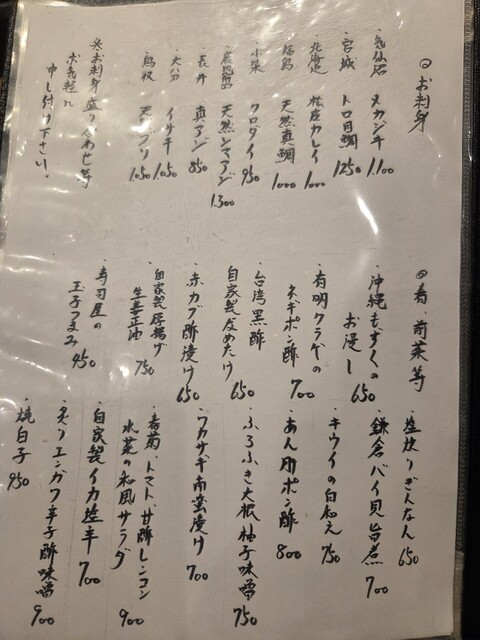 ◎お刺身
・気仙沼 メカジキ 1.100
・宮城 トロ目鯛 1250
・北海道 松皮カレイ 1000
・福島 天然真鯛 1000
・小柴 クロダイ 950
・鹿児島 天然シマアジ 1.300
・長井 真アジ 850
・大分 イサキ 1.050
・鳥取 天然ブリ 1.050
※お刺身盛り合わせ等
お気軽に
申し付け下さい。
◎肴、前菜等
・沖縄もずくの
お浸し 650
・有明クラゲの
ネギポン酢 700
・台湾黒酢
自家製なめたけ 650
・赤カブ酢漬け 650
・自家製厚揚げ
生姜正油 750
・寿司屋の
玉子つまみ 450
・塩炒りぎんなん 650
・鎌倉バイ貝旨煮 700
・キウイの白和え 750
・あん肝ポン酢 800
・ふろふき大根 柚子味噌 750
・ワカサギ南蛮漬け 700
・春菊、トマト、甘酢レンコン
水菜の和風サラダ 900
・自家製イカ塩辛 700
・炙りエンガワ辛子酢味噌 900
・焼白子 950